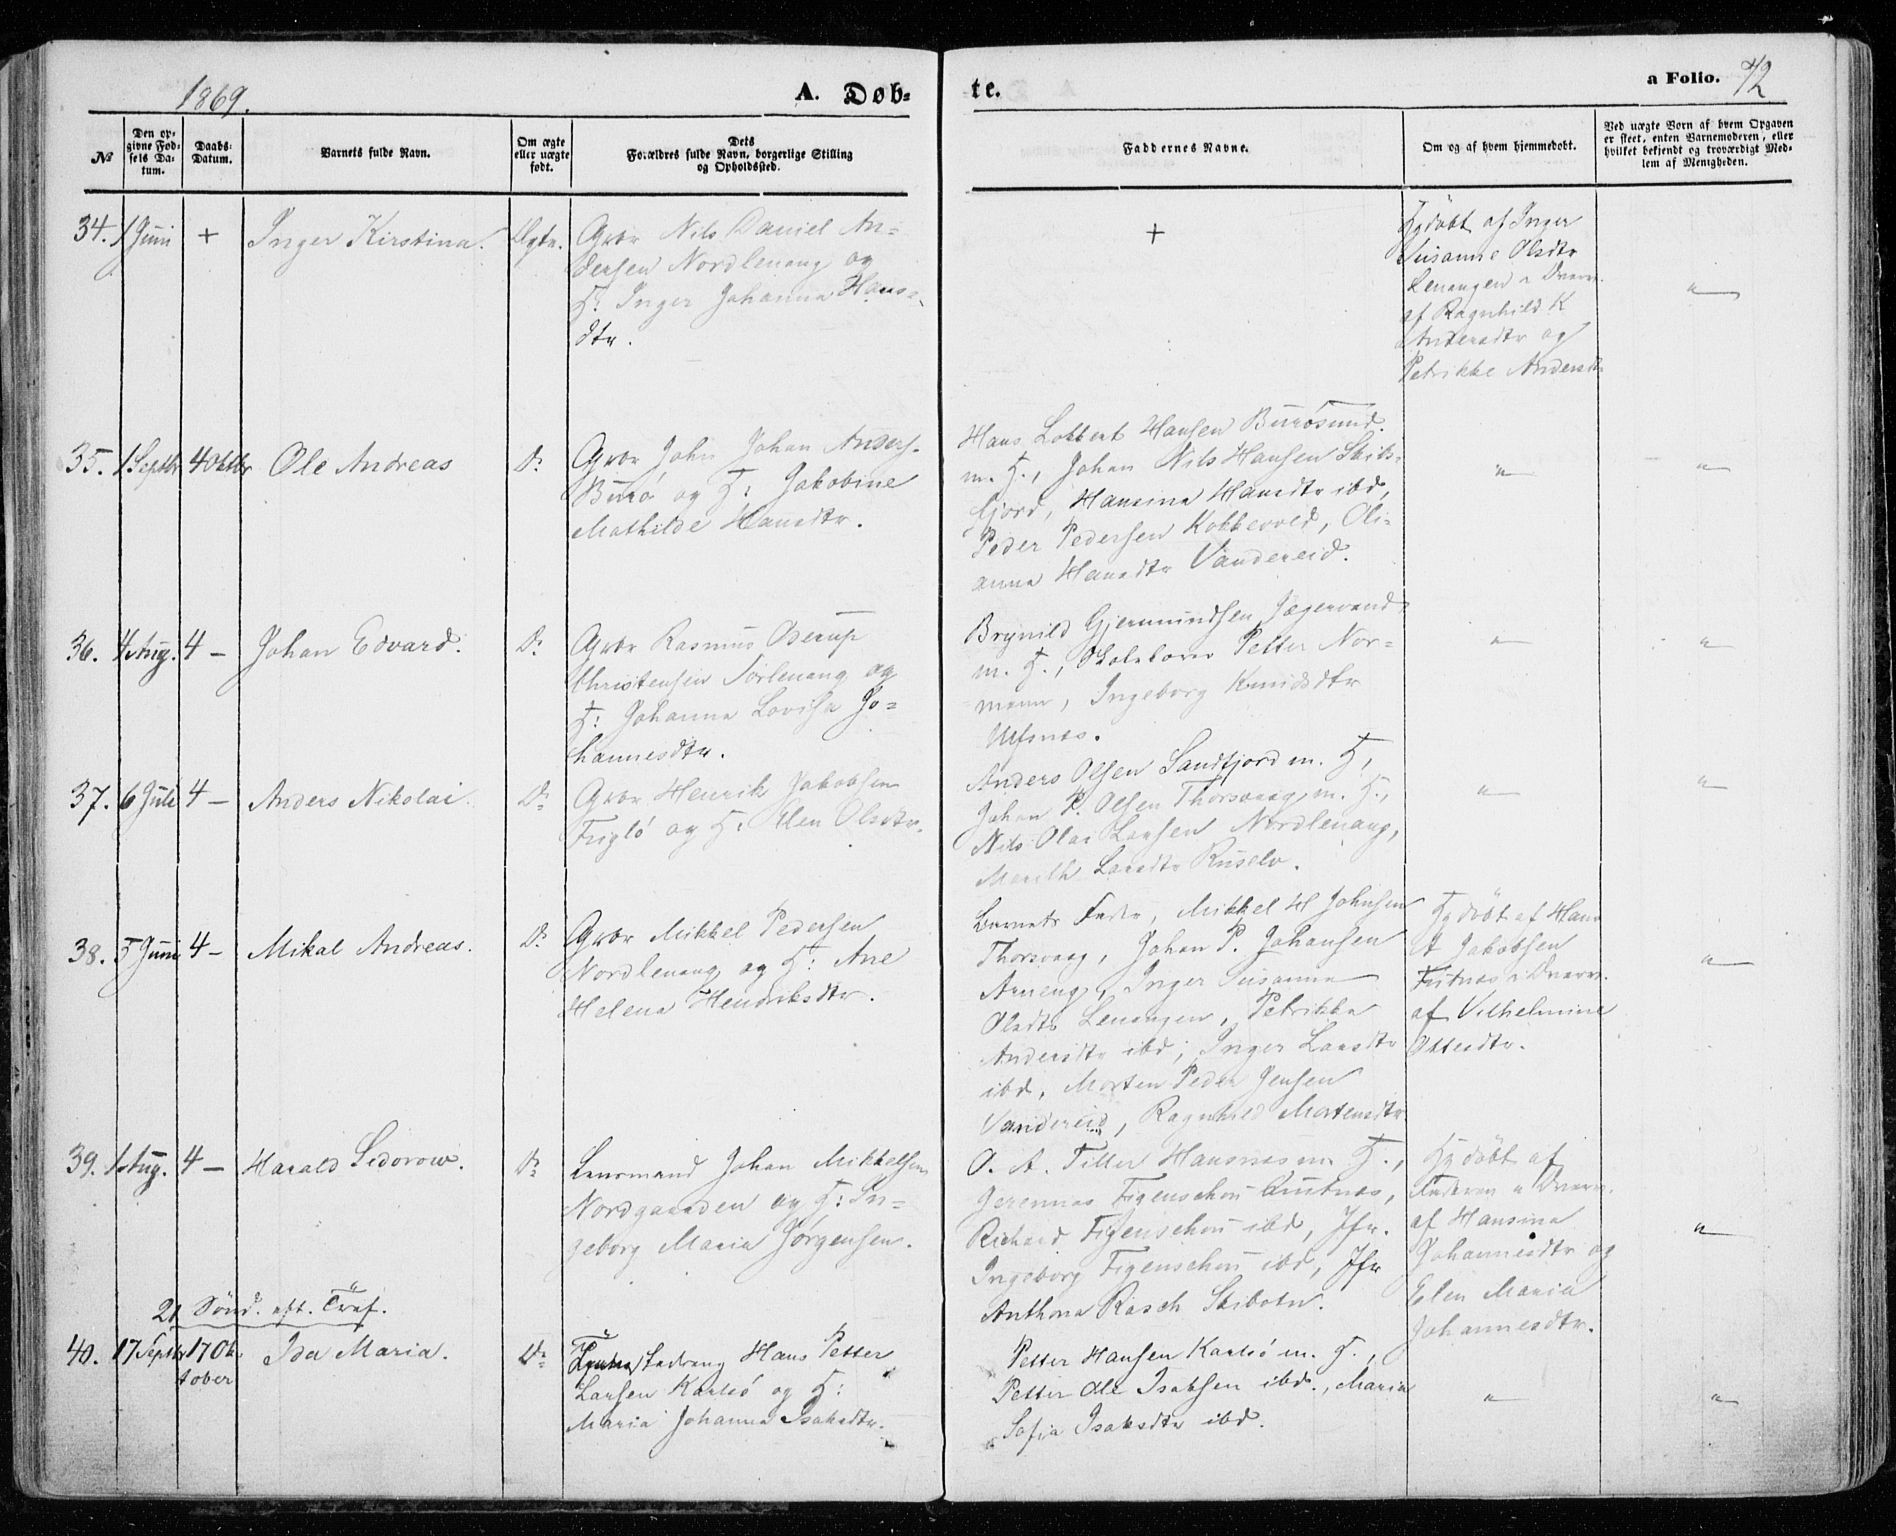 1869.
A. Døb-
te.
a Folio.
72
№
Den op-
givne Fød-
sels Da-
tum.
Daabs-
Datum.
Barnets fulde Navn.
Om ægte
eller uægte
født.
Dets
Forældres fulde Navn, borgerlige Stilling
og Opholdssted.
Faddernes Navne.
Om og af hvem hjemmedøbt.
Ved uægte Born af hvem Opgaven
er skeet, enten Barnemoderen, eller
hvilket bekjendt og troværdigt Med-
lem af Menigheden.
34. 1 Juni + Inger Kirstina. Ægte.
Gbr Nils Daniel An-
dersen Nordlenang og
H: Inger Johanna Hans-
dtr.
+
Hjdöbt af Inger
Susanne Olsdtr
Lenangen
af Ragnhild K
Andersdtr og
Petrikke Andersdtr
"
35. 1 Septbr 4 Oktbr Ole Andreas D:
Gbr John Johan Anders.
Burö og H: Jakobine
Mathilde Hansdtr.
Hans Lobbert Hansen Burösund
m. H., Johan Nils Hansen Skibs-
fjord, Hansina Hansdtr ibd,
Peder Pedersen Kobbevold, Oli-
anna Hansdtr Vandereid.
"
"
36. 4 Aug. 4 — Johan Edvard. D:
Gbr Rasmus Oderup
Christensen Sørlenang og
H: Johanna Lovisa Jo-
hannesdtr.
Brynild Gjermundsen Jægervand
m. H., Skolelærer Petter Nor-
mann, Ingeborg Knudsdtr
Ulfsnes.
"
"
37. 6 Juli 4 — Anders Nikolai. D:
Gbr Henrik Jakobsen
Fuglö og H: Elen Olsdtr.
Anders Olsen Sandfjord m. H,
Johan P. Olsen Thorsvaag, m. H.,
Nils Olai Larsen Nordlenang,
Marith Larsdtr Ruselv.
"
"
38. 5 Juni 4 — Mikal Andreas. D:
Gbr Mikkel Pedersen
Nordlenang og H: Ane
Helena Hendriksdtr.
Barnets Fader, Mikkel H Johnsen
Thorsvaag, Johan P. Johansen
Arneng, Inger Susanna
Olsdtr Lenangen, Petrikka
Andersdtr ibd, Inger Larsdtr
ibd, Morten Peder Jensen
Vandereid, Ragnhild Mortensdtr
Hjdöbt af Hans
A Jakobsen
af Vilhelmine
Ottesdtr.
"
39. 1 Aug. 4 — Harald Sidorow. D:
Lensmand Johan Mikkelsen
Nordgaarden og H: In-
geborg Maria Jørgensen.
O. A. Tiller Hansnes m H.,
Jeremias Figenschou
Richard Figenschou ibd, Jfr.
Ingeborg Figenschou ibd, Jfr
Anthona Rasch Skibotn.
Hjdöbt af
af Hansina
Johannesdtr og
Elen Maria
Johannesdtr.
"
21 Sönd. eft. Tref.
40. 17 Septbr 17 Ok-
tober
Ida Maria. D:
Hans Petter
Larsen Karlsö og H:
Maria Johanna Isaksdtr.
Petter Hansen Karlsö m. H.,
Petter Ole Isaksen ibd., Maria
Sofia Isaksdtr ibd.
"
"